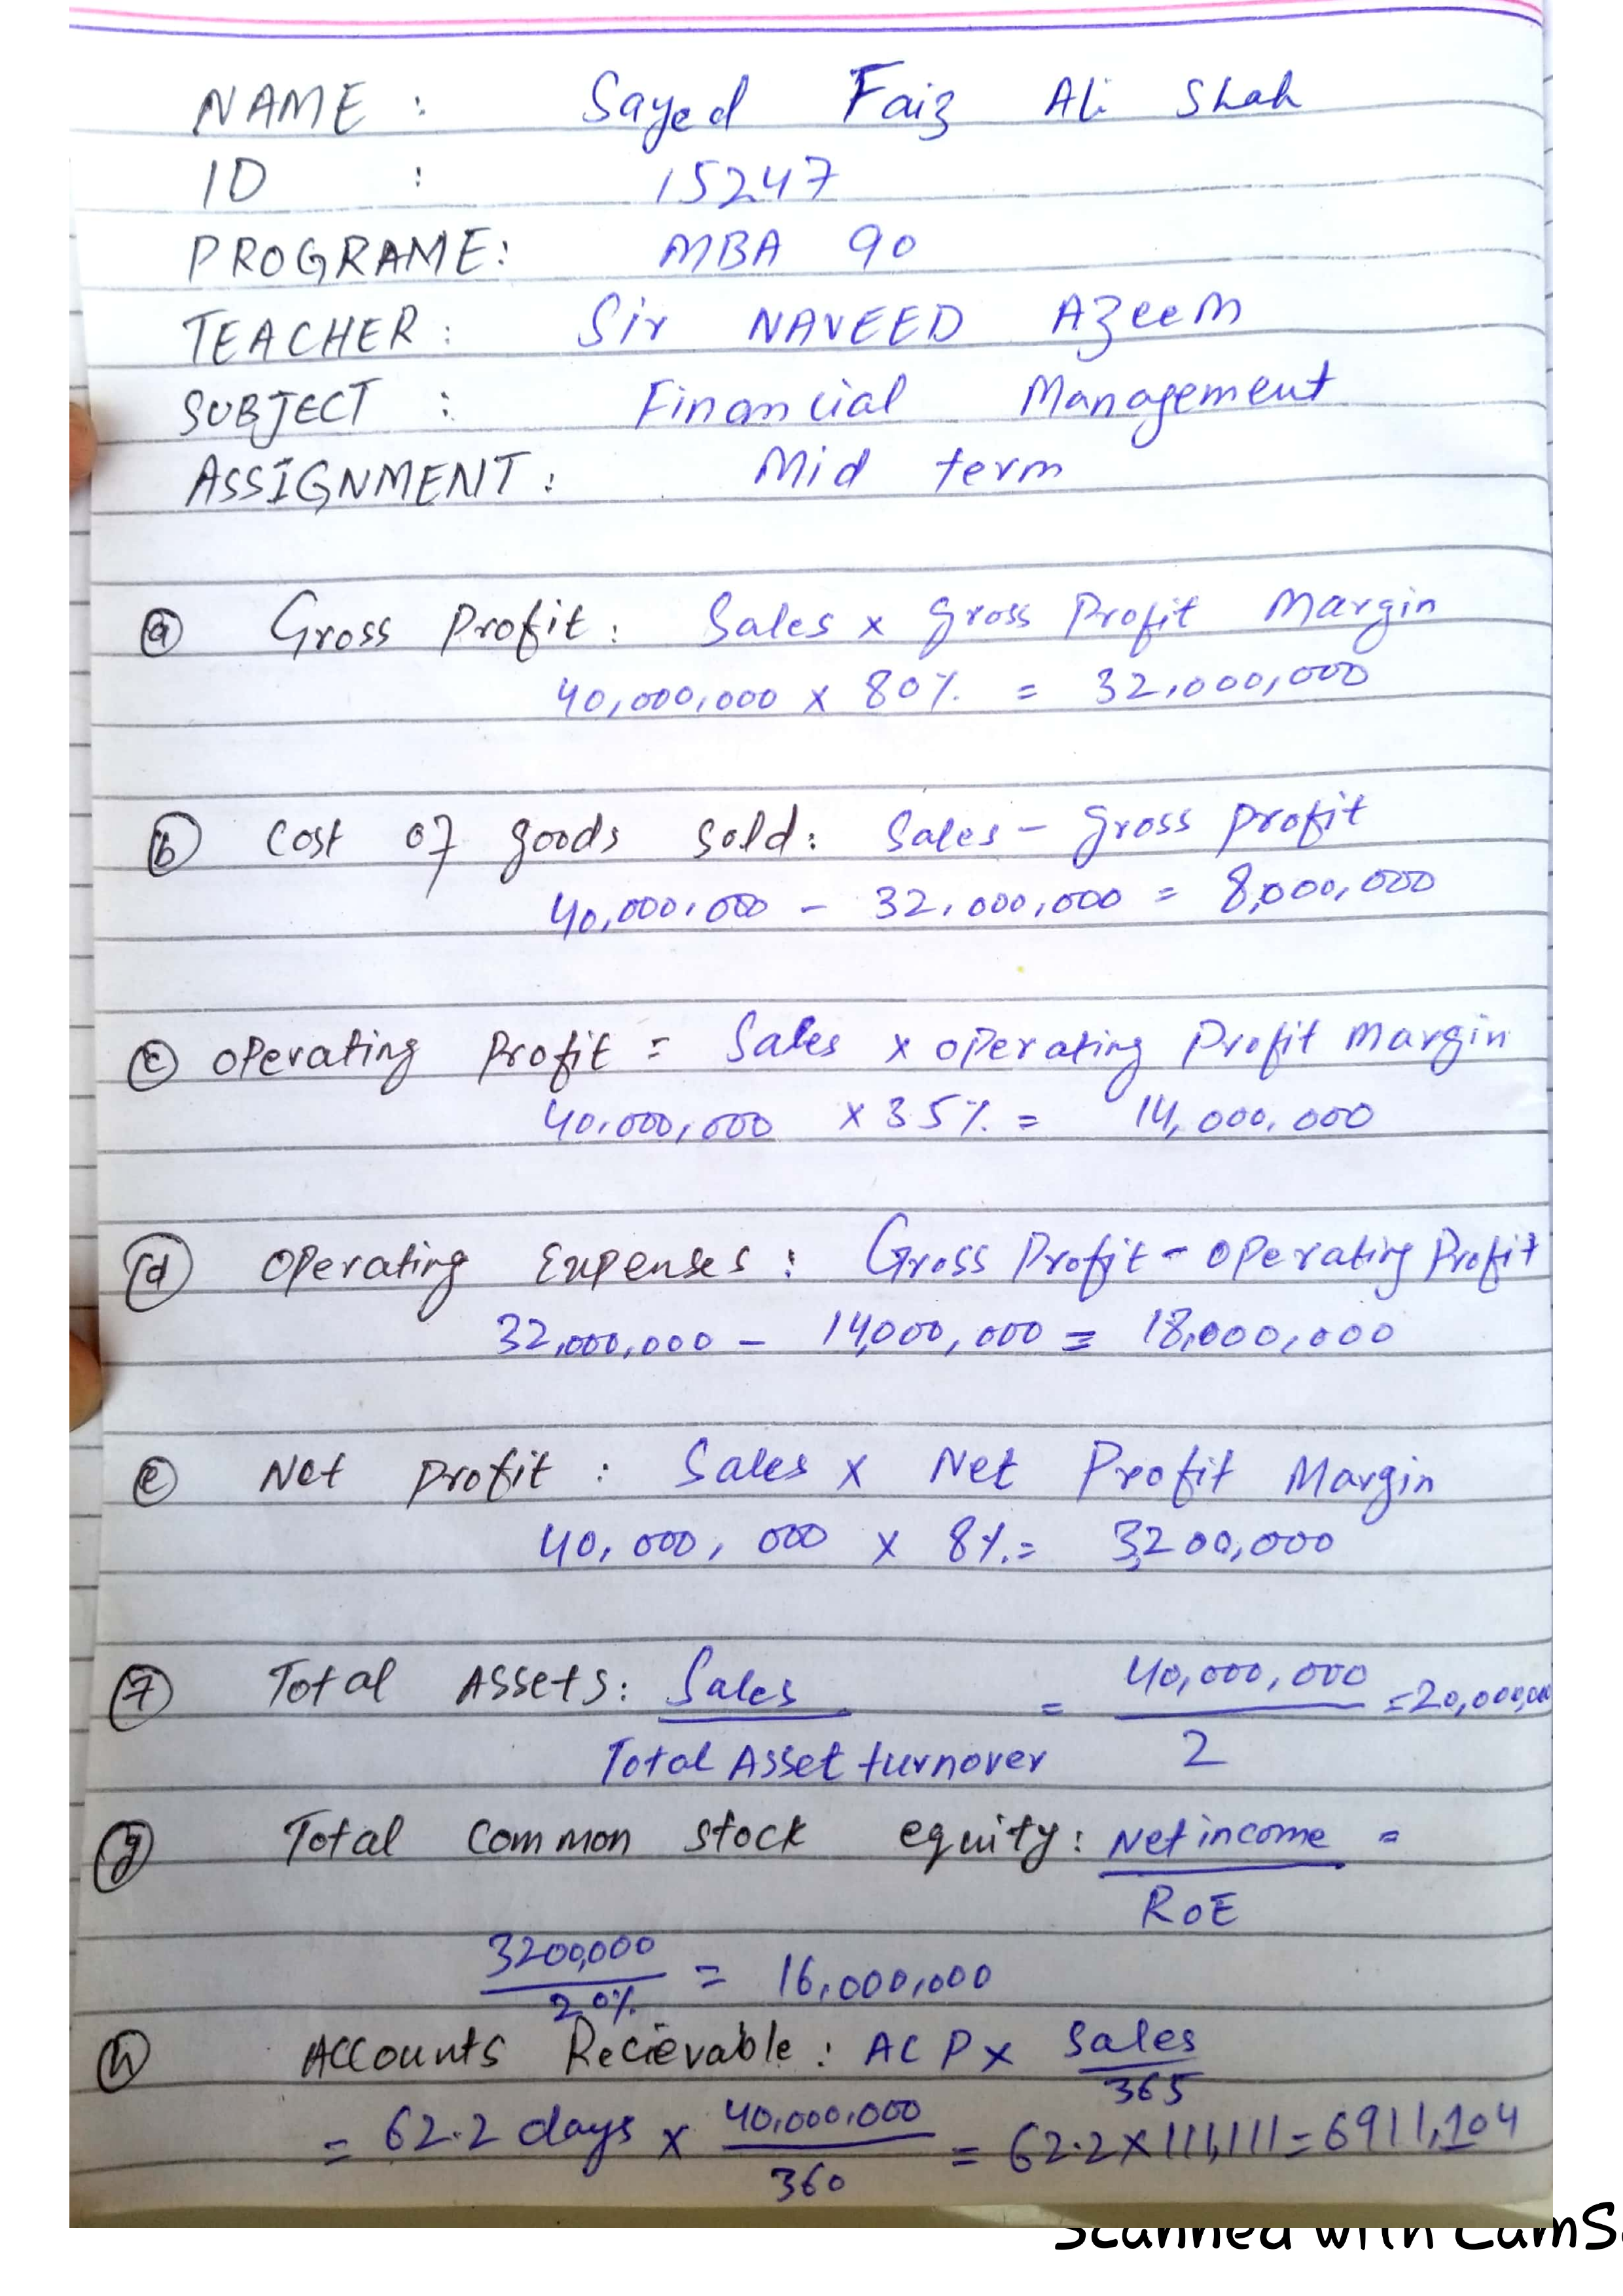 NAME : Sayed Faiz Ali Shah
ID : 15247
PROGRAME: MBA 90
TEACHER: Sir NAVEED AZeeM
SUBJECT : Financial Management
ASSIGNMENT: Mid term
(a) Gross Profit: Sales x gross Profit Margin
40,000,000 x 80% = 32,000,000
(b) Cost of goods sold: Sales - gross profit
40,000,000 - 32,000,000 = 8,000,000
(c) Operating Profit = Sales x operating Profit Margin
40,000,000 x 35% = 14,000,000
(d) Operating Expenses: Gross Profit - Operating Profit
32,000,000 - 14,000,000 = 18,000,000
(e) Net Profit : Sales x Net Profit Margin
40,000,000 x 8% = 3,200,000
(f) Total Assets: Sales = 40,000,000 = 20,000,00
Total Asset turnover 2
(g) Total Common stock equity: Net income =
ROE
3200,000 = 16,000,000
20%
(h) Accounts Recievable: ACP x Sales
365
= 62.2 days x 40,000,000 = 62.2 x 111,111 = 6911,104
360
Scanned with CamS